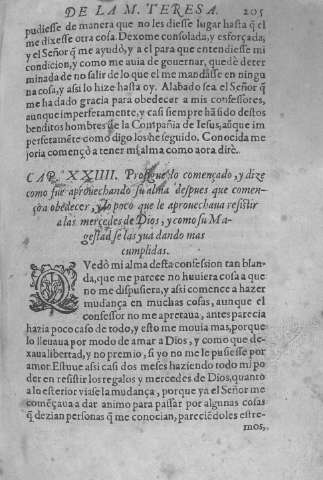 DE LA M. TERESA. 205
pudiesse de manera que no les diesse lugar hasta q̃ el
me dixesse otra cosa. Dexome consolada, y esforçada,
y el Señor q̃ me ayudò, y a el para que entendiesse mi
condicion, y como me auia de gouernar, quedè deter
minada de no salir de lo que el me mandasse en ningu
na cosa, y assi lo hize hasta oy. Alabado sea el Señor q̃
me ha dado gracia para obedecer a mis confessores,
aunque imperfetamente, y casi siempre hã sido destos
benditos hombres de la Compañia de Iesus, aũque im
perfetamẽte como digo los he seguido. Conocida me
joria començò a tener mi alma como aora dirè.
CAP. XXIIII. Prosigue lo començado, y dize
como fue aprouechando su alma despues que comen-
çò a obedecer, y lo poco que le aprouechaua resistir
a las mercedes de Dios, y como su Ma-
gestad se las yua dando mas
cumplidas.
QVedò mi alma desta confession tan blan-
da, que me parece no huuiera cosa a que
no me dispusiera, y assi comence a hazer
mudança en muchas cosas, aunque el
confessor no me apretaua, antes parecia
hazia poco caso de todo, y esto me mouia mas, porque
lo lleuaua por modo de amar a Dios, y como que de-
xaua libertad, y no premio, si yo no me le pusiesse por
amor. Estuue assi casi dos meses haziendo todo mi po
der en resistir los regalos y mercedes de Dios, quanto
a lo esterior viase la mudança, porque ya el Señor me
comẽçaua a dar animo para passar por algunas cosas
q̃ dezian personas que me conocian, pareciẽdoles estre-
mos,